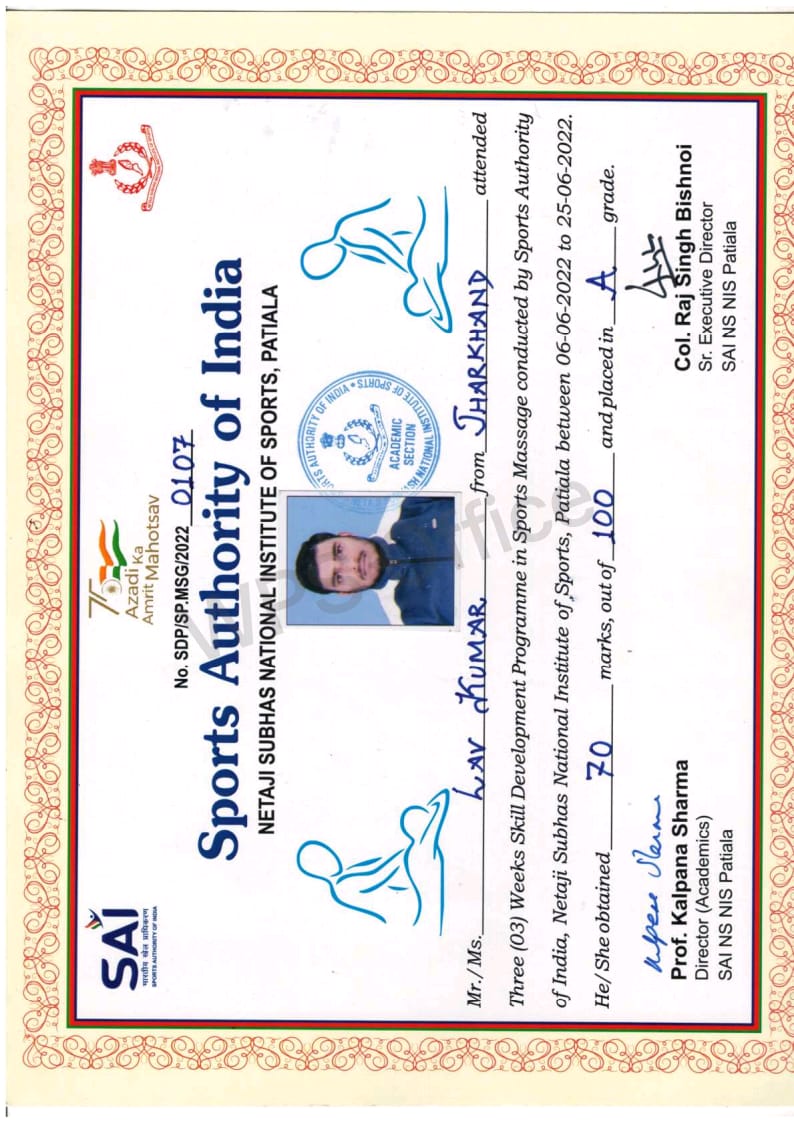 SAI
भारतीय खेल प्राधिकरण
SPORTS AUTHORITY OF INDIA
75
Azadi Ka
Amrit Mahotsav
No. SDP/SP.MSG/2022 0107
Sports Authority of India
NETAJI SUBHAS NATIONAL INSTITUTE OF SPORTS, PATIALA
RTS AUTHORITY OF INDIA * 
SH NATIONAL INSTITUTE OF SPORTS
ACADEMIC
SECTION
Mr./Ms. LAV KUMAR from JHARKHAND attended
Three (03) Weeks Skill Development Programme in Sports Massage conducted by Sports Authority
of India, Netaji Subhas National Institute of Sports, Patiala between 06-06-2022 to 25-06-2022.
He/She obtained 70 marks, out of 100 and placed in A grade.
WPS Office
Kalpana Sharma
Prof. Kalpana Sharma
Director (Academics)
SAI NS NIS Patiala
Col. Raj Singh Bishnoi
Sr. Executive Director
SAI NS NIS Patiala